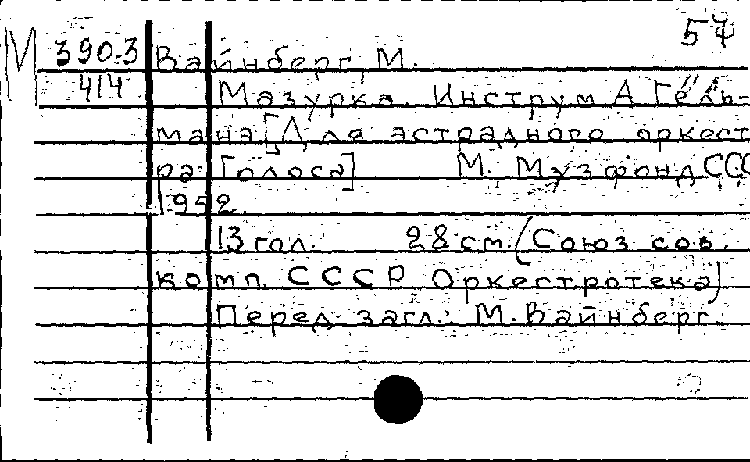 57
М 390-3 Вайнберг, М.
414 Мазурка. Инструм А Гель-
мана [Для эстрадного оркест
ра Голоса] М. Музфонд ССС
1952
13 гол. 28 см. (Союз сов.
комп. СССР Оркестротека)
Перед загл.: М. Вайнберг.